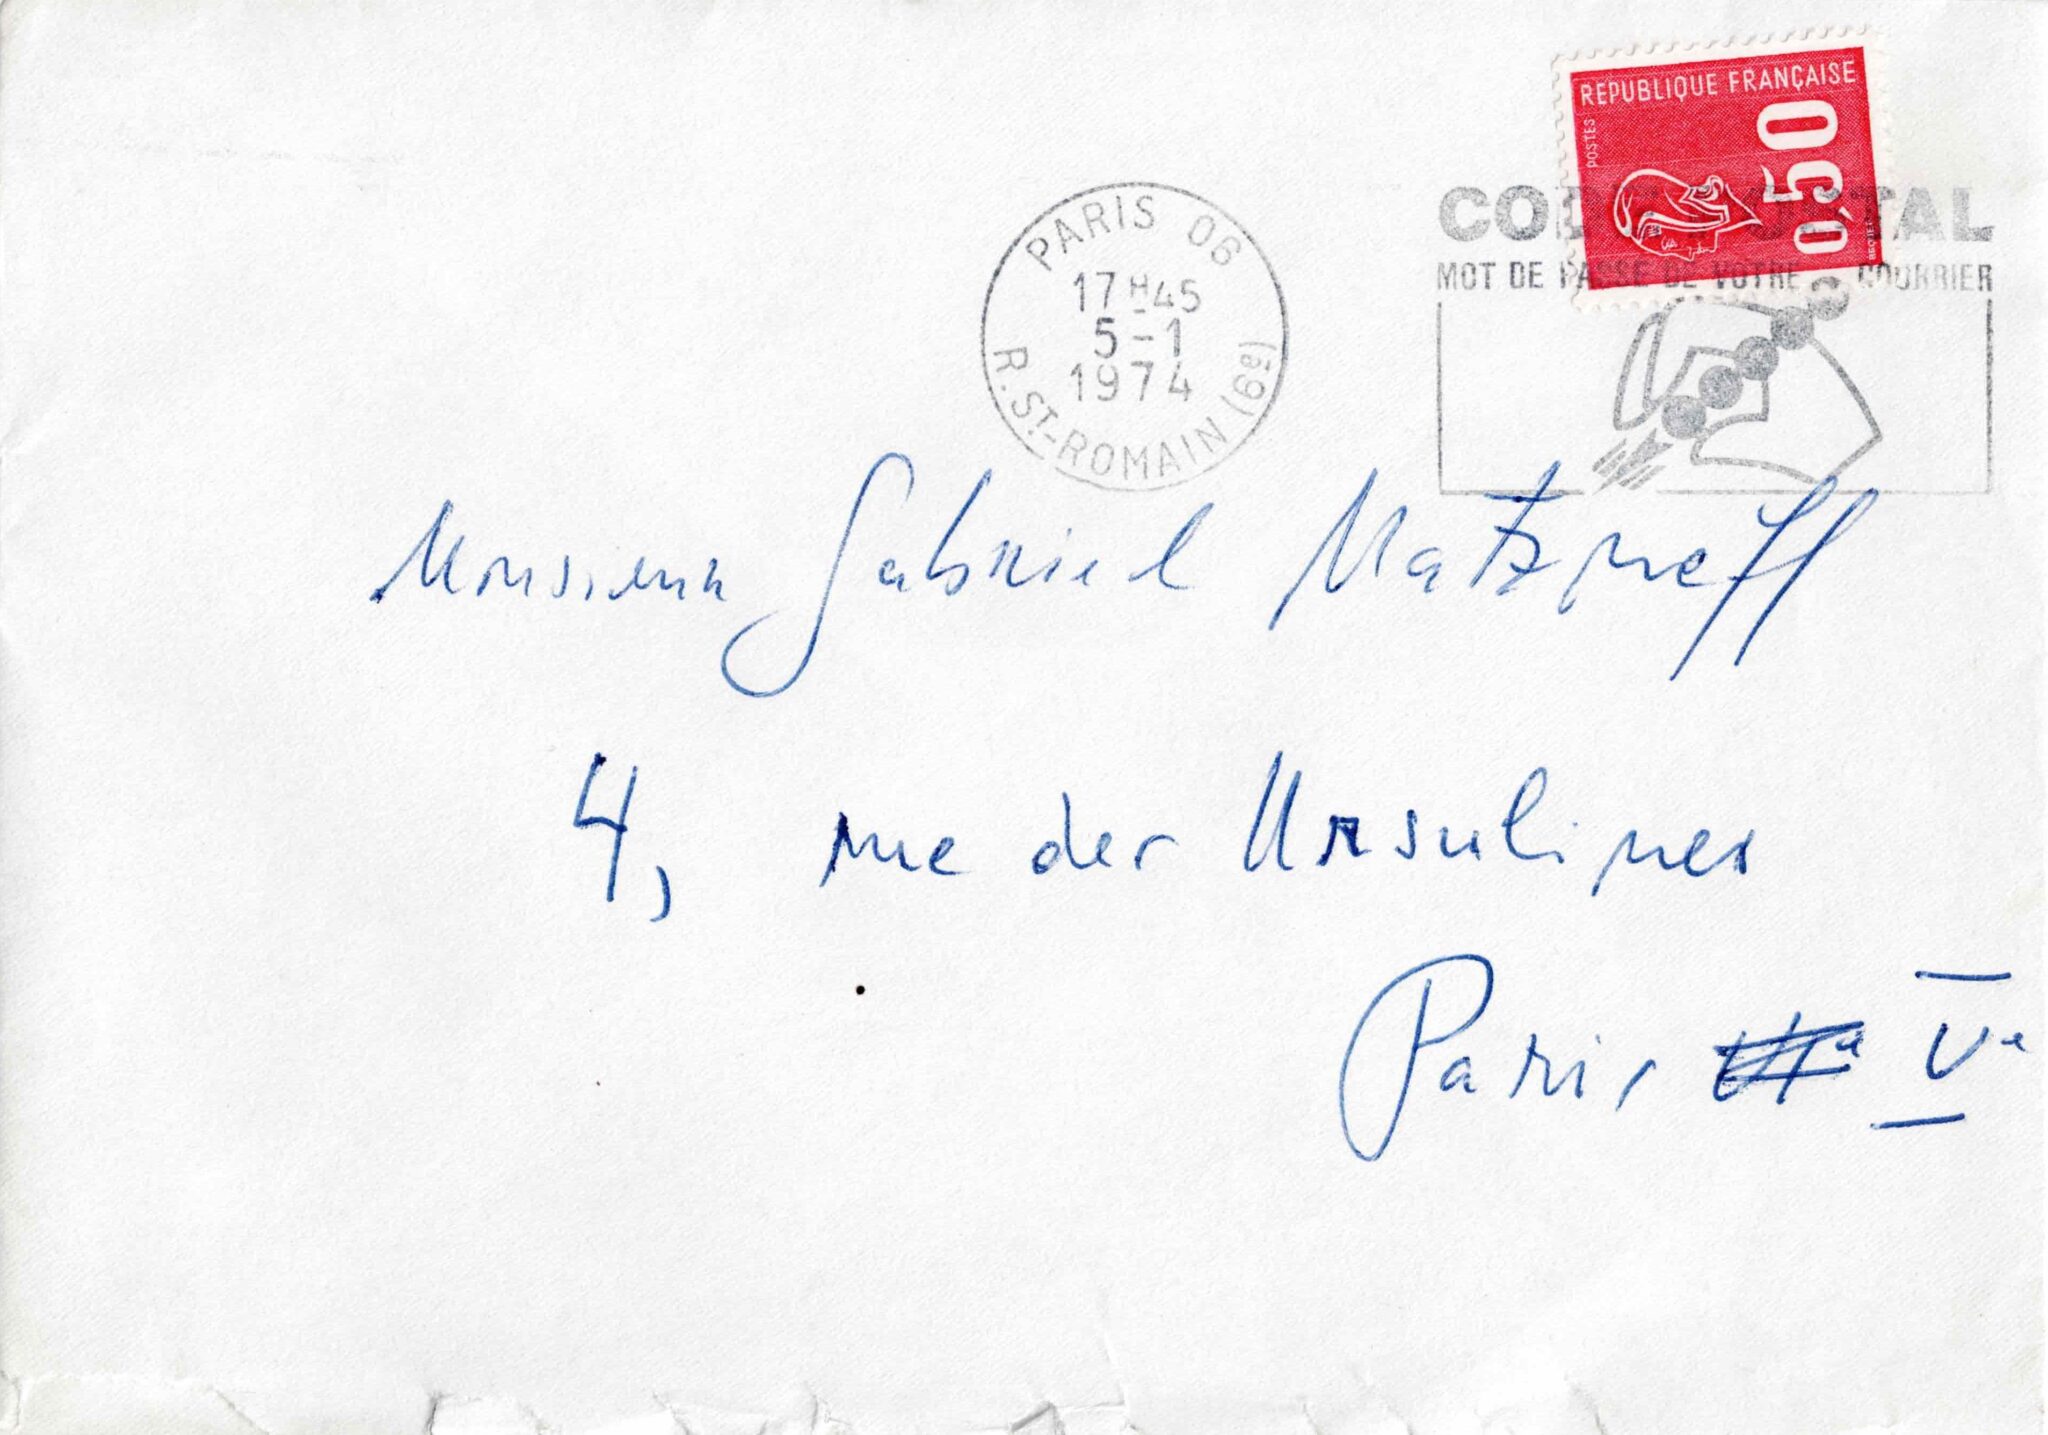 REPUBLIQUE FRANÇAISE
POSTES
0,50
BEQUET
CODE POSTAL
MOT DE PASSE DE VOTRE COURRIER
PARIS 06
17H45
5-1
1974
R. ST-ROMAIN (6e)
Monsieur Gabriel Matzneff
4, rue des Ursulines
Paris Ve